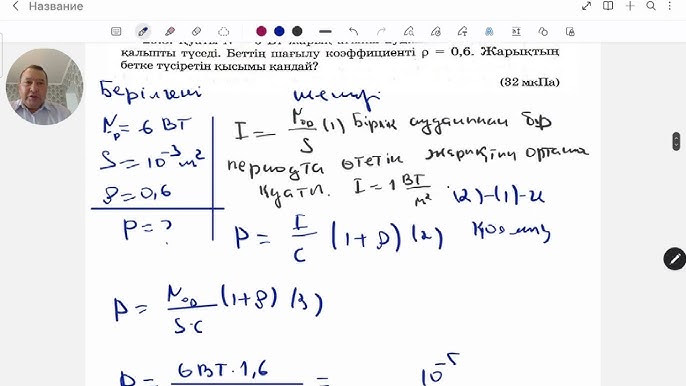 Название
қалыпты түседі. Беттің шағылу коэффициенті ρ = 0,6. Жарықтың
бетке түсіретін қысымы қандай?
(32 мкПа)
Берілгені
шешуі
Nор = 6 ВТ
S = 10⁻³ м²
ρ = 0,6
P = ?
I = Nор/S (1) Бірлік ауданнан бір
периодта өтетін жарықтың орташа
қуаты. I = 1 ВТ/м² (2)-(1)-и
P = I/c (1+ρ) (2) қоямыз
P = Nор/S·c (1+ρ) (3)
P = 6 ВТ · 1,6 =
10⁻⁵